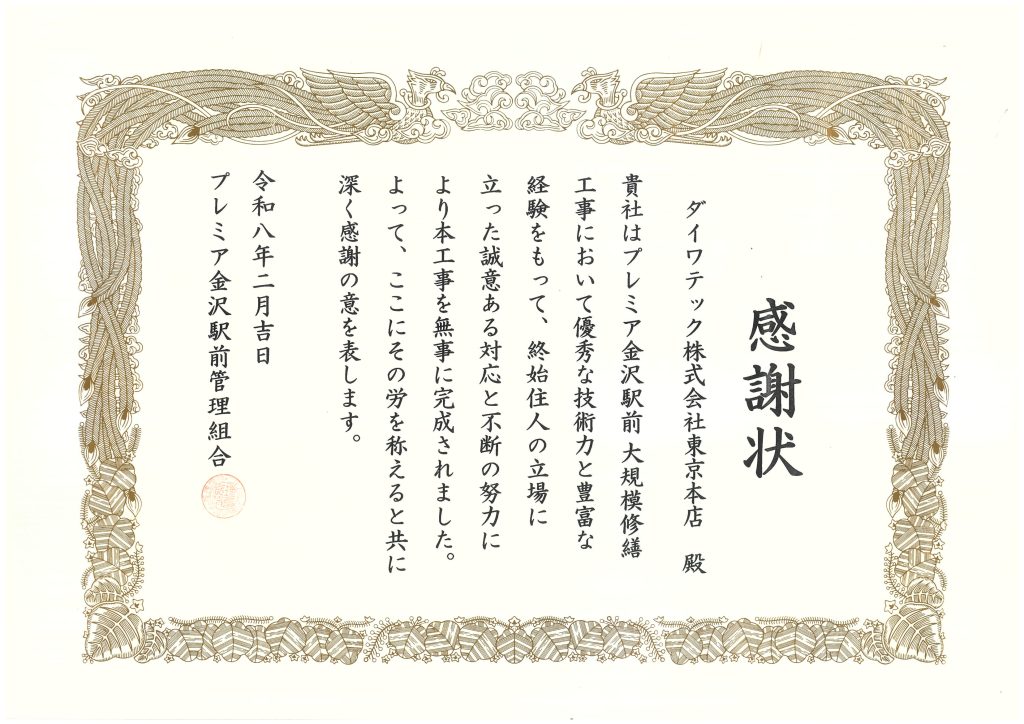 感謝状
ダイワテック株式会社東京本店　殿
貴社はプレミア金沢駅前 大規模修繕
工事において優秀な技術力と豊富な
経験をもって、終始住人の立場に
立った誠意ある対応と不断の努力に
より本工事を無事に完成されました。
よって、ここにその労を称えると共に
深く感謝の意を表します。
令和八年二月吉日
プレミア金沢駅前管理組合